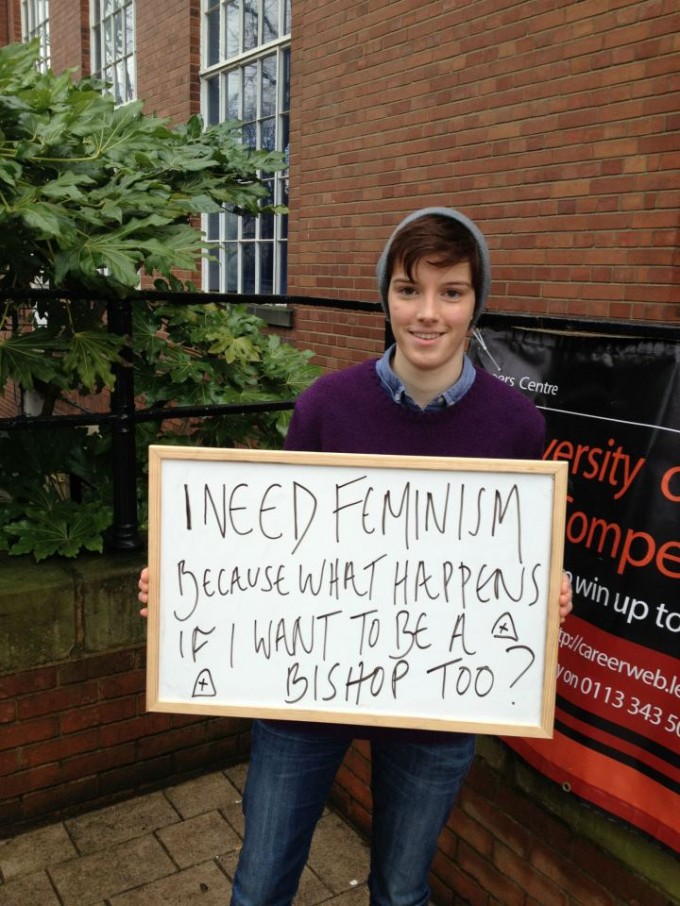 I NEED FEMINISM
BECAUSE WHAT HAPPENS
IF I WANT TO BE A
BISHOP TOO?
ers Centre
ersity
ompe
win up to
careerweb.le
on 0113 343 50